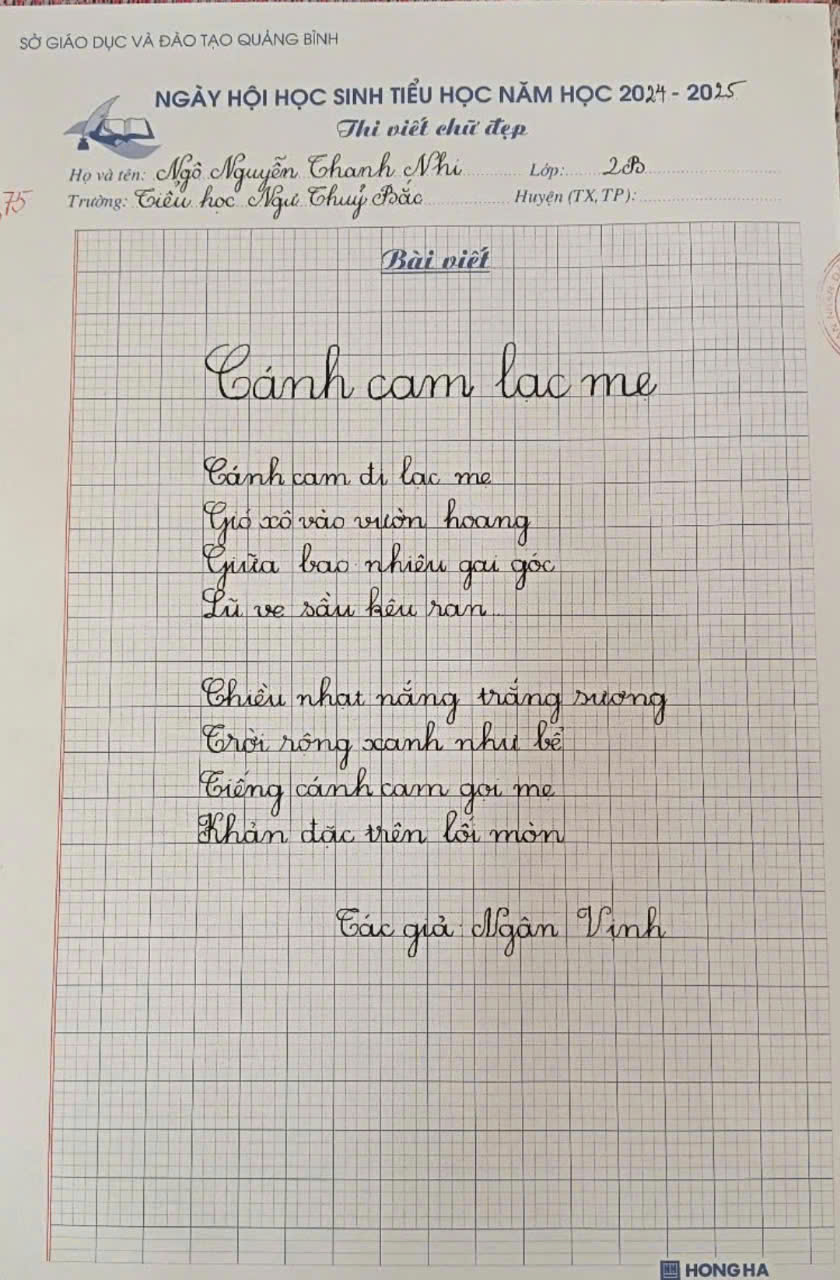 SỞ GIÁO DỤC VÀ ĐÀO TẠO QUẢNG BÌNH
NGÀY HỘI HỌC SINH TIỂU HỌC NĂM HỌC 2024 - 2025
Thi viết chữ đẹp
Họ và tên: Ngô Nguyễn Thanh Nhi Lớp: 2B
75
Trường: Tiểu học Ngư Thuỷ Bắc Huyện (TX, TP):
Bài viết
Cánh cam lạc mẹ
Cánh cam đi lạc mẹ
Gió xô vào vườn hoang
Giữa bao nhiêu gai góc
Lũ ve sầu kêu ran
Chiều nhạt nắng trắng sương
Trời rộng xanh như bể
Tiếng cánh cam gọi mẹ
Khản đặc trên lối mòn
Tác giả: Ngân Vịnh
HONG HA